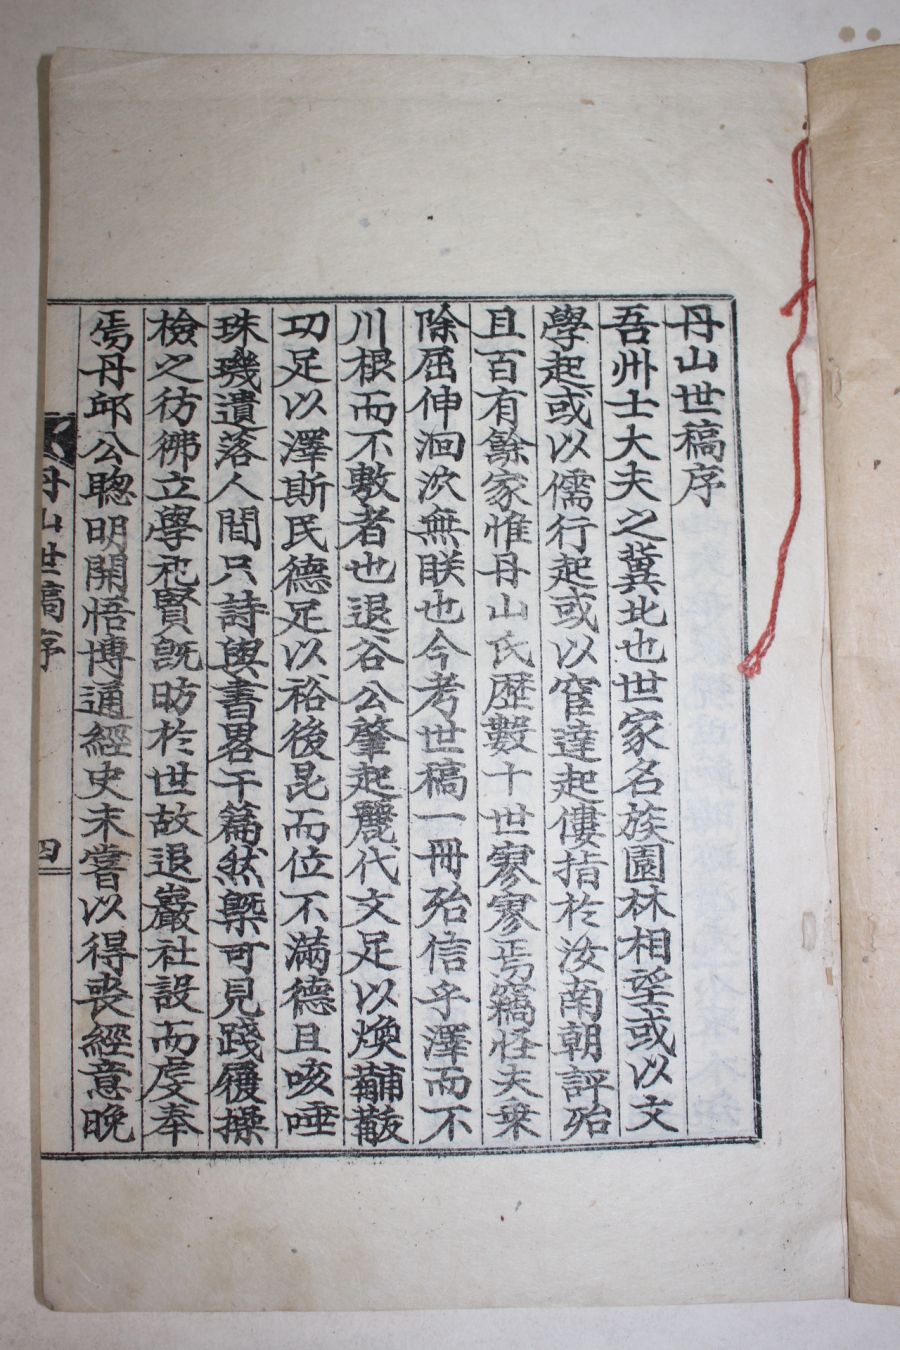 丹山世稿序
吾州士大夫之冀北也世家名族園林相望或以文
學起或以儒行起或以宦達起僂指於汝南朝評殆
且百有餘家惟丹山氏歷數十世寥寥焉竊怪夫乘
除屈伸洄泬無眹也今考世稿一冊殆信乎澤而不
川根而不敷者也退谷公肇起麗代文足以煥黼黻
㓛足以澤斯民德足以裕後昆而位不滿德且咳唾
珠璣遺落人間只詩與書畧干篇然槩可見踐履操
檢之彷彿立學祀賢旣昉於世故退巖社設而虔奉
焉丹邱公聰明開悟博通經史未嘗以得喪經意晩
丹山世稿序
四